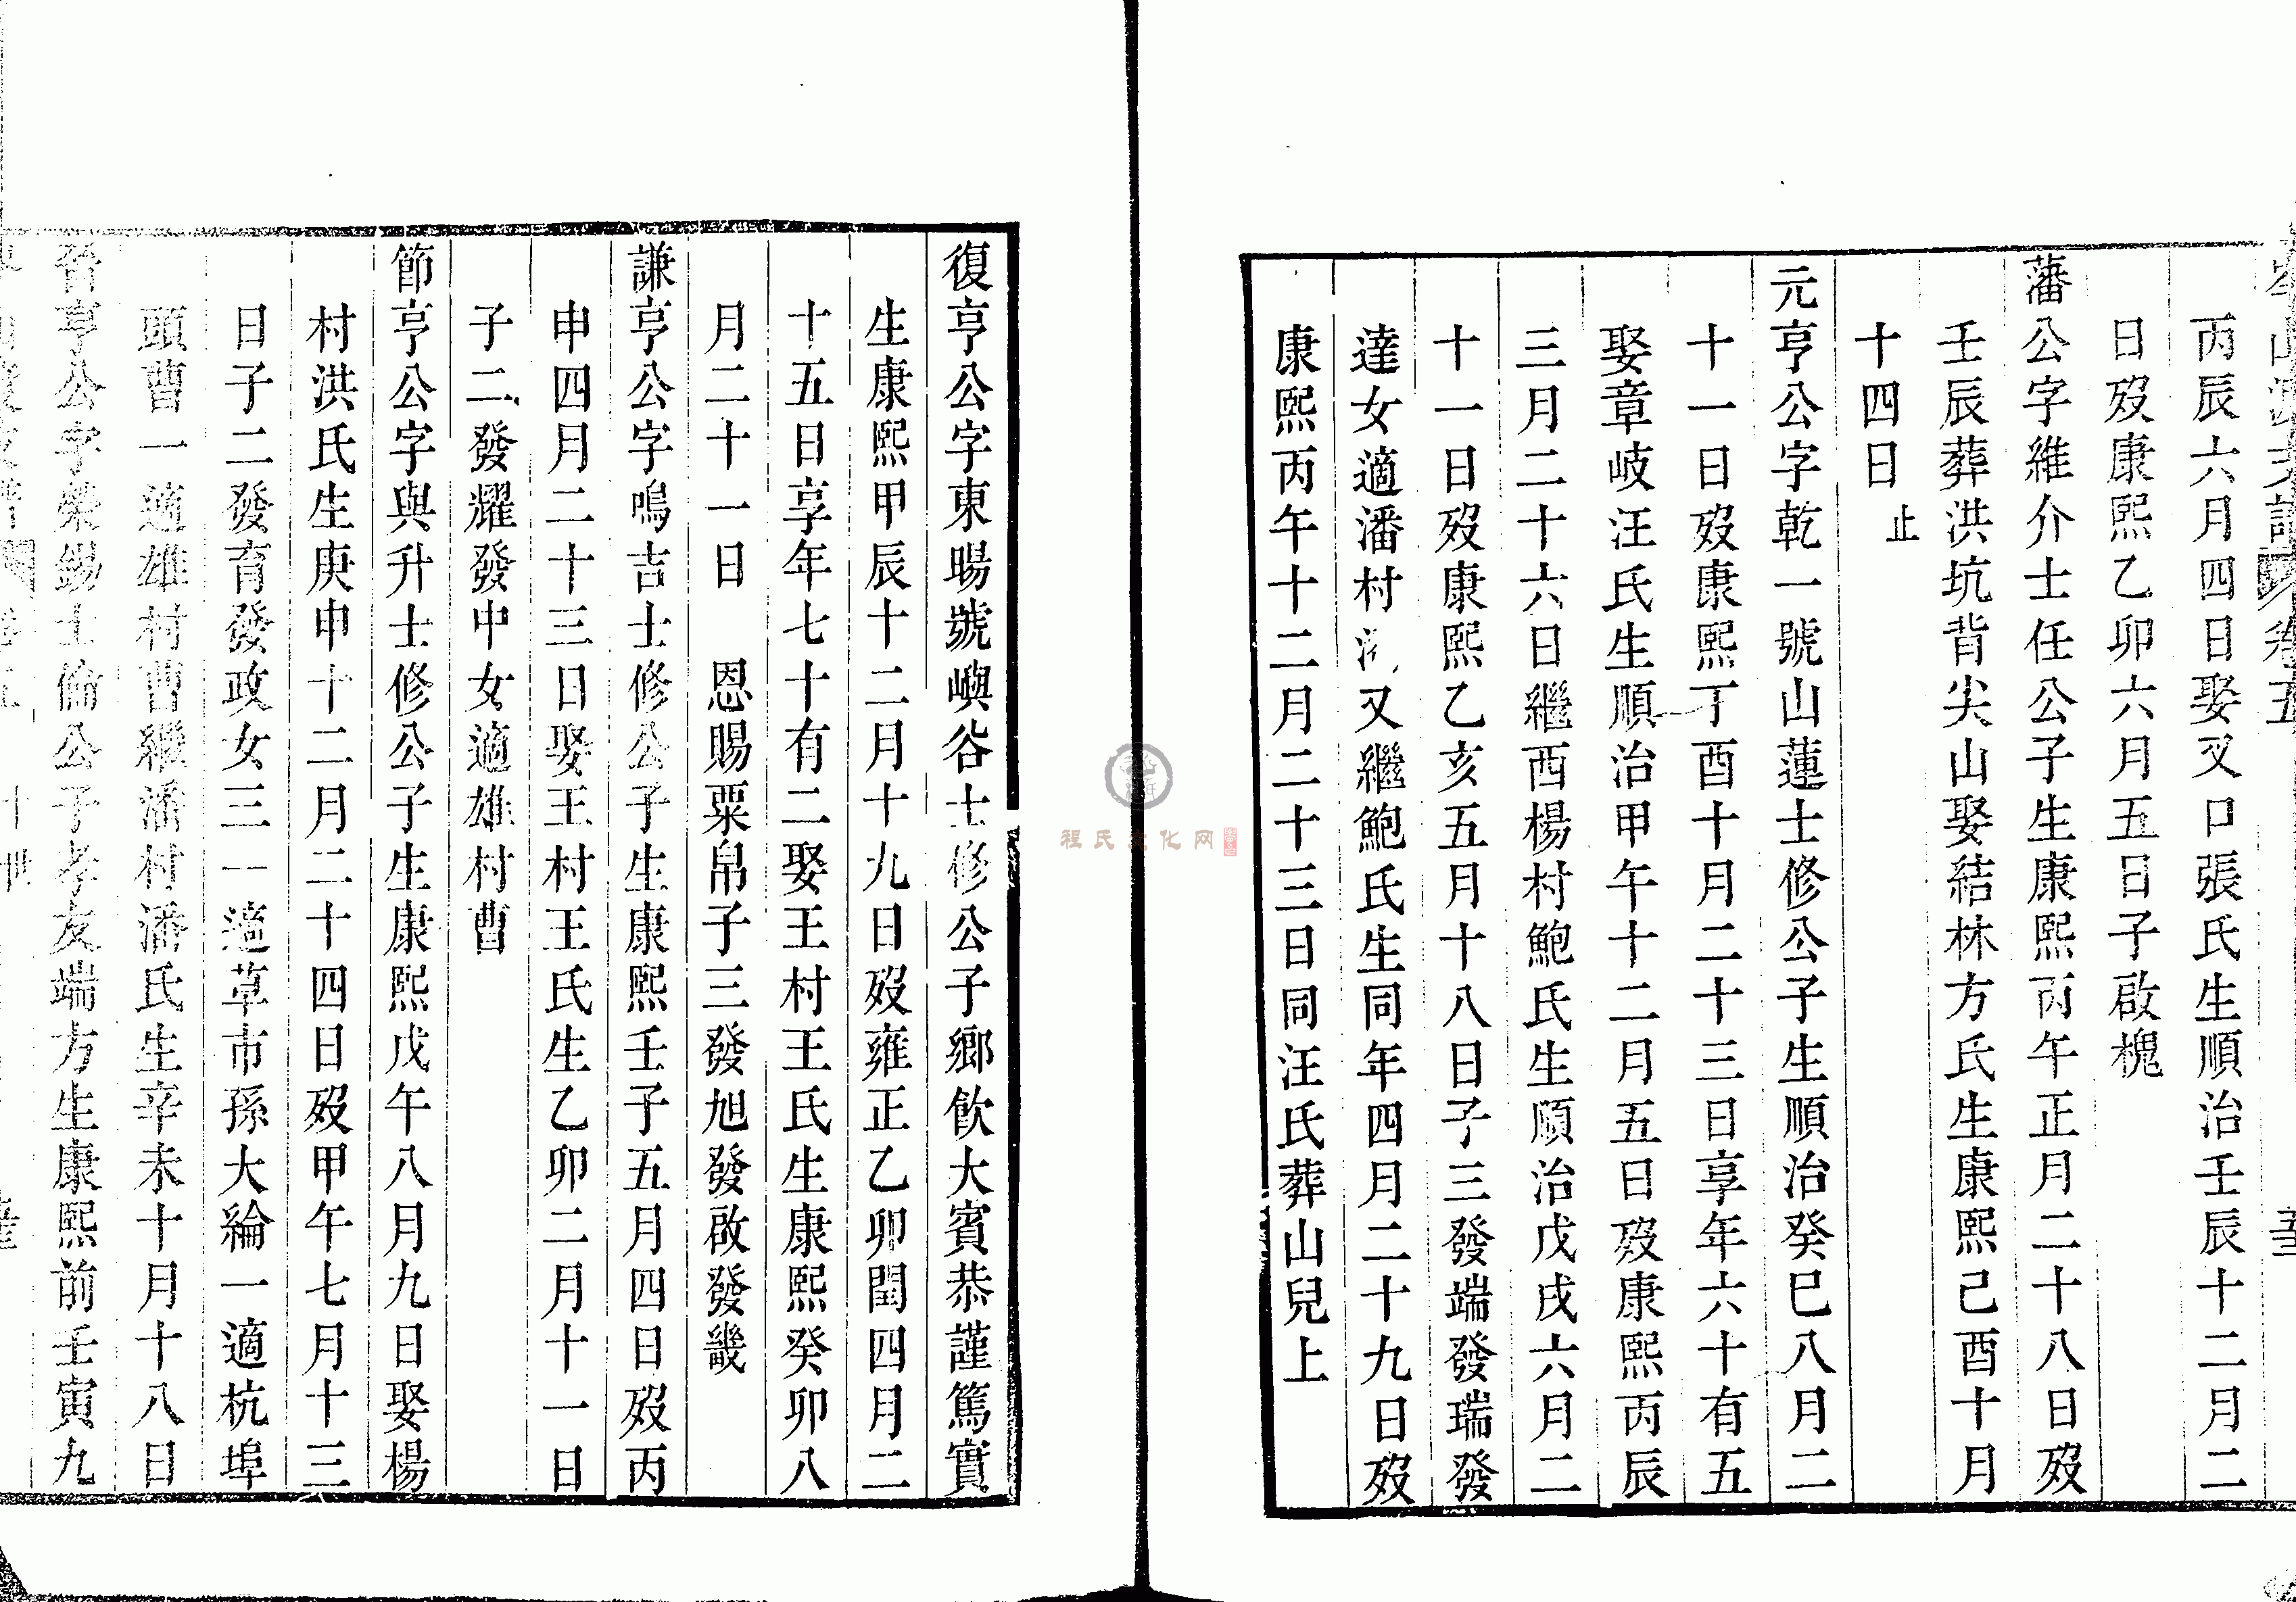 丙辰六月四日娶叉口張氏生順治壬辰十二月二
日歿康熙乙卯六月五日子啟槐
藩公字維介士任公子生康熙丙午正月二十八日歿
壬辰葬洪坑背尖山娶結林方氏生康熙己酉十月
十四日 止
元亨公字乾一號山蓮士修公子生順治癸巳八月二
十一日歿康熙丁酉十月二十三日享年六十有五
娶章岐汪氏生順治甲午十二月五日歿康熙丙辰
三月二十六日繼西楊村鮑氏生順治戊戌六月二
十一日歿康熙乙亥五月十八日子三發端發瑞發
達女適潘村又繼鮑氏生同年四月二十九日歿
康熙丙午十二月二十三日同汪氏葬山兒上
復亨公字東暘號嶼谷士修公子鄉飲大賓恭謹篤實
生康熙甲辰十二月十九日歿雍正乙卯閏四月二
十五日享年七十有二娶王村王氏生康熙癸卯八
月二十一日 恩賜粟帛子三發旭發啟發畿
謙亨公字鳴吉士修公子生康熙壬子五月四日歿丙
申四月二十三日娶王村王氏生乙卯二月十一日
子二發耀發中女適雄村曹
節亨公字與升士修公子生康熙戊午八月九日娶楊
村洪氏生庚申十二月二十四日歿甲午七月十三
日子二發育發政女三一適草市孫大綸一適杭埠
頭曹一適雄村曹繼潘村潘氏生辛未十月十八日
晉亨公字榮錫士倫公子孝友端方生康熙前壬寅九
程氏文化网